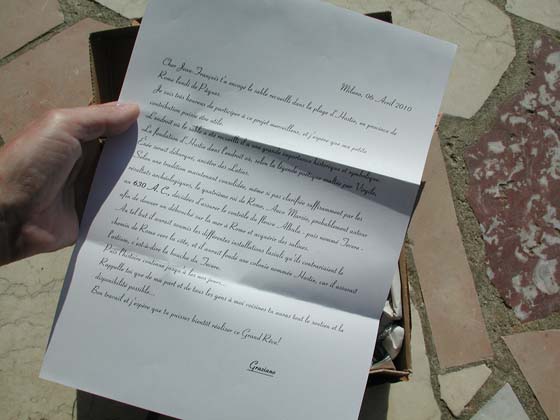 Milano, 06 Avril 2010
Cher Jean-François t'a envoyé le sable recueilli dans la plage d'Hostie, en province de
Rome lundi de Pâques.
Je suis très heureux de participer à ce projet merveilleux, et j'espère que ma petite
contribution puisse être utile.
L'endroit où le sable a été recueilli il a une grande importance historique et symbolique.
La fondation d'Hostie dans l'endroit où, selon la légende poétique traitée par Virgile,
Énée aurait débarqué, ancêtre des Latins.
Selon une tradition maintenant consolidée, même si pas clarifiée suffisamment par les
résultats archéologiques, le quatrième roi de Rome, Anco Marcio, probablement autour
au 630 A. C., décidera d'assurer le contrôle du fleuve Albula - puis nommé Tevere -
afin de donner un débouché sur la mer à Rome et acquérir des salines.
Au tel but il aurait soumis les différentes installations latiels qu'ils contrôlaient le
chemin de Rome vers la côte, et il aurait fondé une colonie nommée Hostia, car il assurait
l'ostium, c'est-à-dire la bouche du Tevere.
Puis l'histoire continue jusqu'à les nos jours...
Rappelle toi que de ma part et de tous les gens à moi voisines tu auras tout le soutien et la
disponibilité possible...
Bon travail et j'espère que tu puisses bientôt réaliser ce Grand Rêve!
Graziano